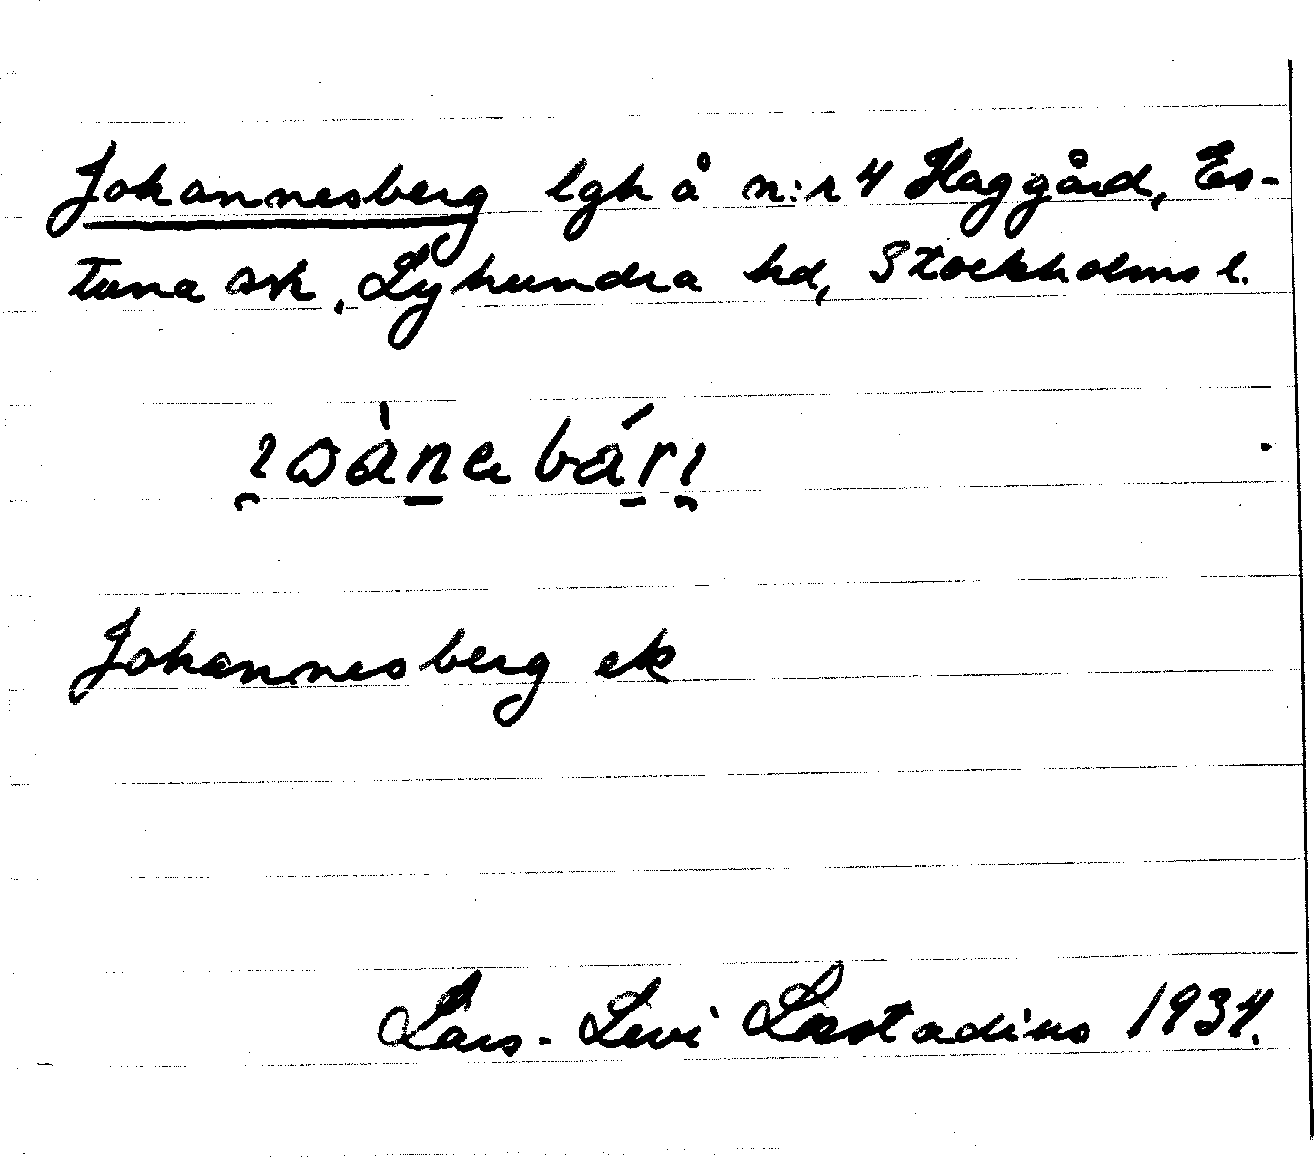 Johannesberg lgh å n:r 4 Haggård, Es-
tuna sk, Lyhundra hd, Stockholms l.
Johannesberg ek
Lars-Levi Læstadius 1934.